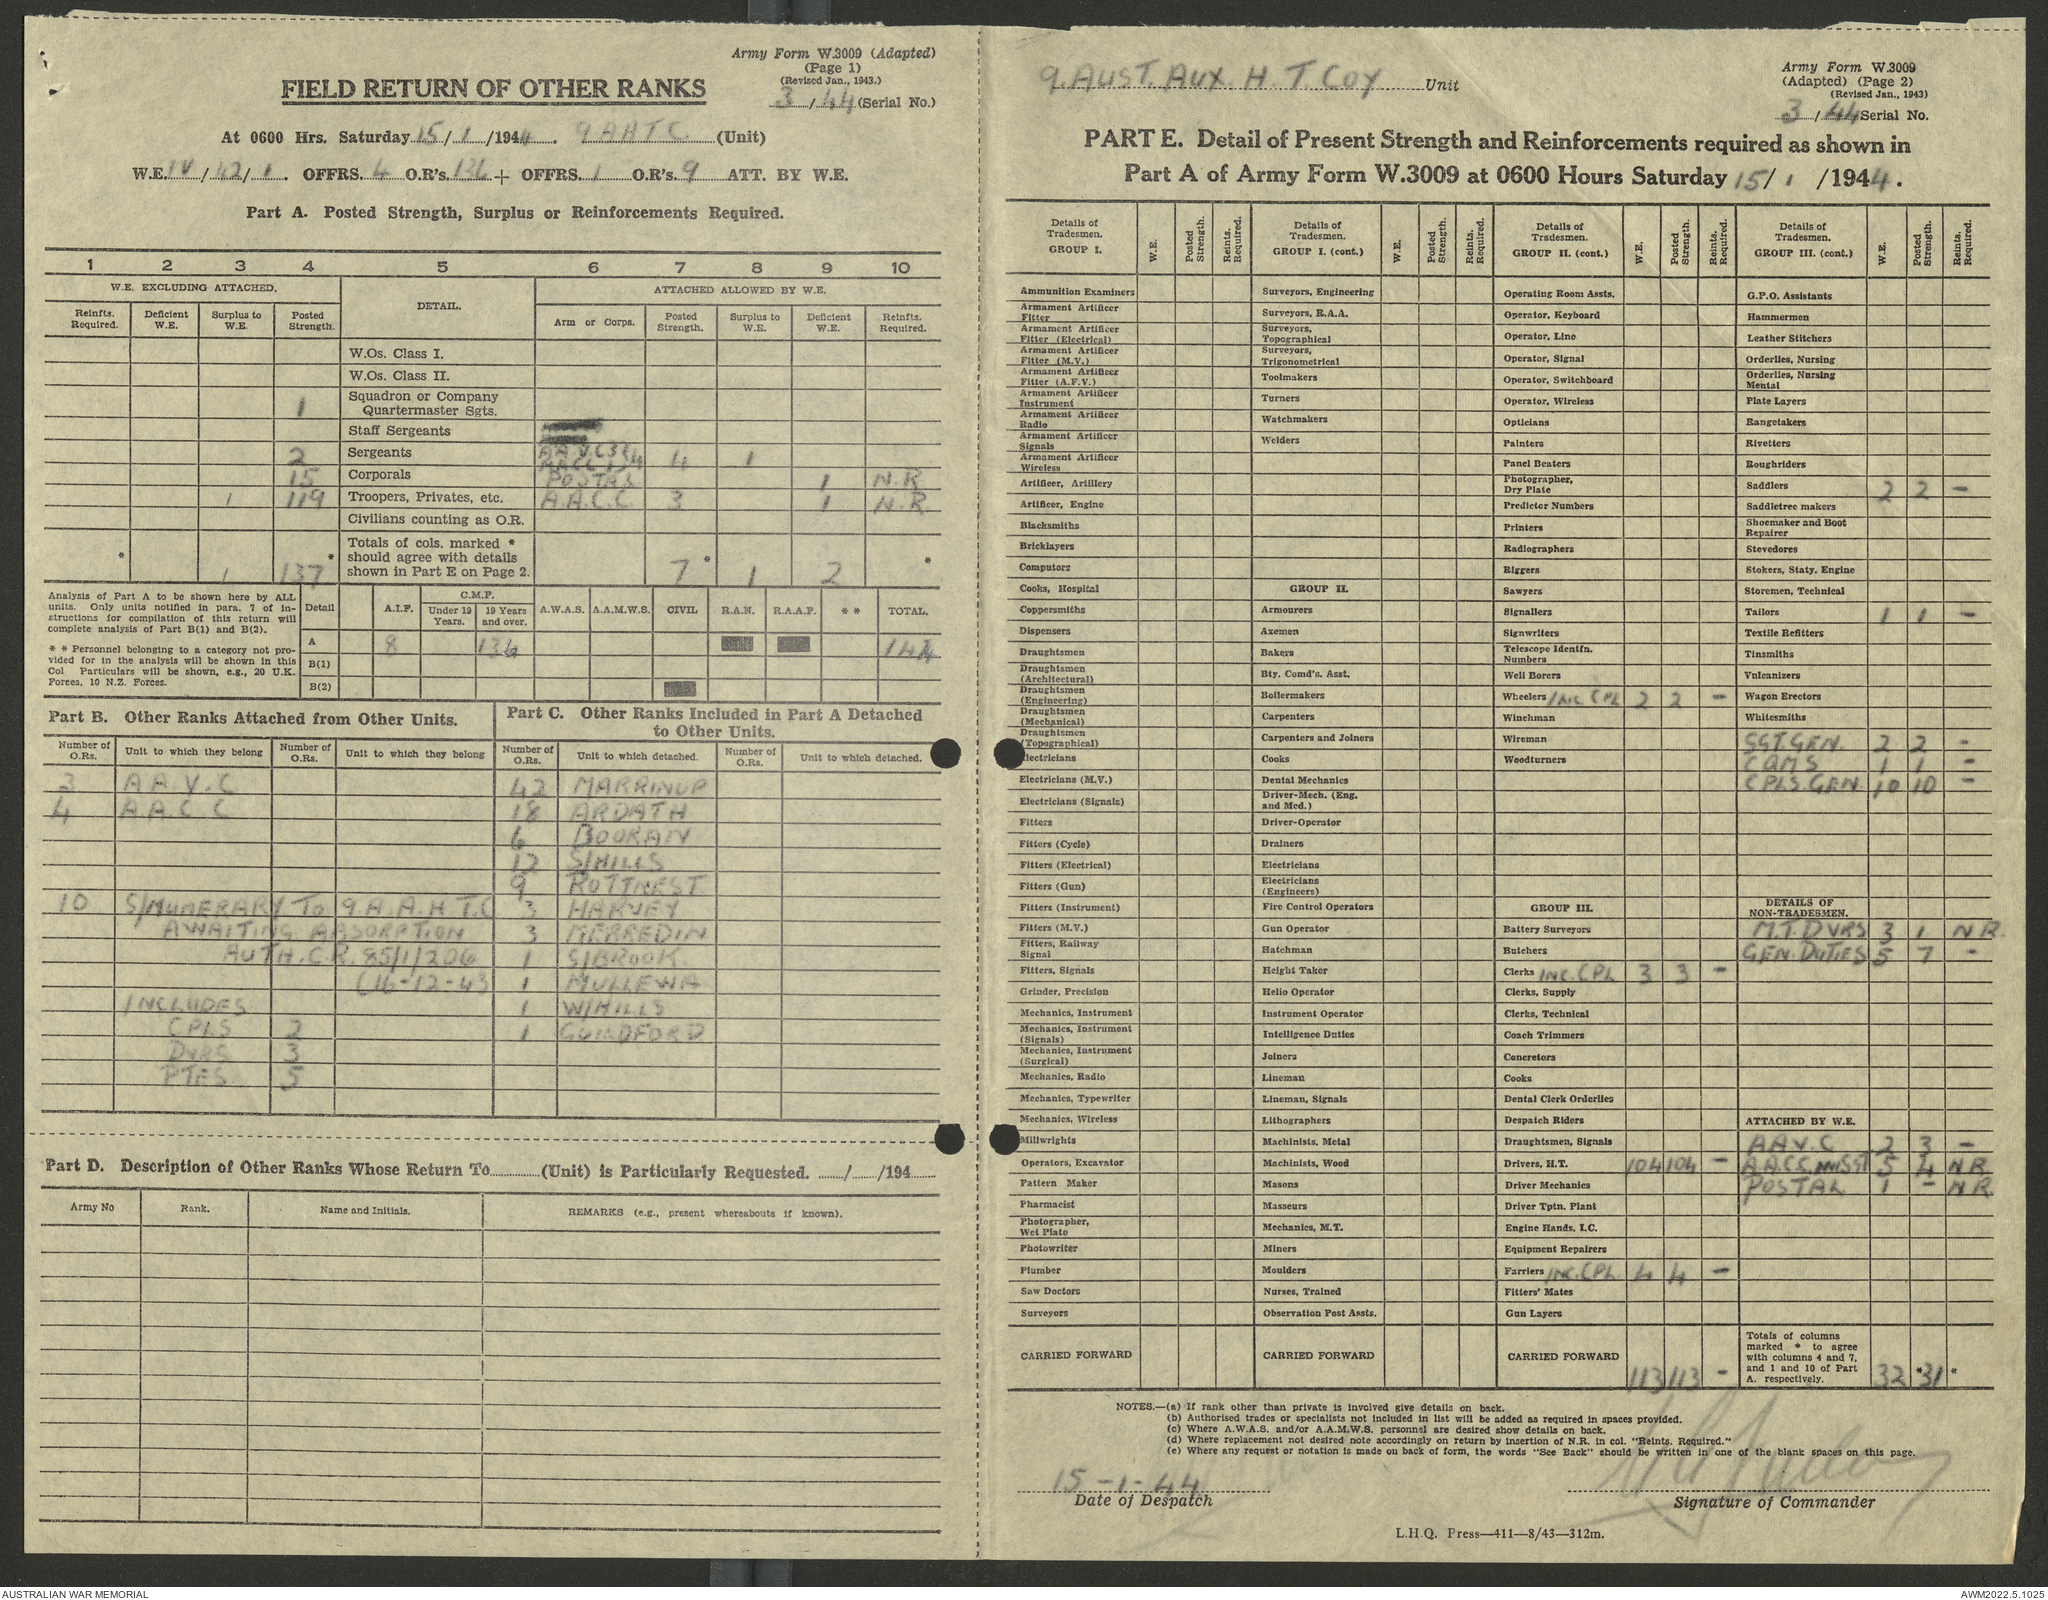 Army Form W.3009 (Adapted)
(Page 1)
(Revised Jan., 1943.)
3/44 (Serial No.)
FIELD RETURN OF OTHER RANKS
At 0600 Hrs. Saturday 15/1/1944. 9 AHTC (Unit)
W.E. IV/42/1. OFFRS. 4 O.R's. 136 + OFFRS. 1 O.R's. 9 ATT. BY W.E.
Part A. Posted Strength, Surplus or Reinforcements Required.
1 2 3 4 5 6 7 8 9 10
W.E. EXCLUDING ATTACHED. DETAIL. ATTACHED ALLOWED BY W.E.
Reinfts. Required. Deficient W.E. Surplus to W.E. Posted Strength. Arm or Corps. Posted Strength. Surplus to W.E. Deficient W.E. Reinfts. Required.
W.Os. Class I.
W.Os. Class II.
1 Squadron or Company Quartermaster Sgts.
Staff Sergeants
2 Sergeants 4 1
15 Corporals POSTAL 1 N.R
1 119 Troopers, Privates, etc. A.A.C.C. 3 1 N.R
Civilians counting as O.R.
* 1 137 * Totals of cols. marked * should agree with details shown in Part E on Page 2. 7 * 1 2 *
Analysis of Part A to be shown here by ALL units. Only units notified in para. 7 of instructions for compilation of this return will complete analysis of Part B(1) and B(2).
* * Personnel belonging to a category not provided for in the analysis will be shown in this Col Particulars will be shown, e.g., 20 U.K. Forces, 10 N.Z. Forces.
Detail A.I.F. C.M.F. Under 19 Years. 19 Years and over. A.W.A.S. A.A.M.W.S. CIVIL R.A.N. R.A.A.F. * * TOTAL.
A 8 136 144
B(1)
B(2)
Part B. Other Ranks Attached from Other Units.
Number of O.Rs. Unit to which they belong Number of O.Rs. Unit to which they belong
3 A A V C
4 A A C C
10 S/NUMERARY TO 9.A.A.H.T.C
AWAITING ABSORPTION
AUTH.C.R. 85/1/206
(16-12-43
INCLUDES
CPLS 2
DVRS 3
PTES 5
Part C. Other Ranks Included in Part A Detached to Other Units.
Number of O.Rs. Unit to which detached. Number of O.Rs. Unit to which detached.
42 MARRINUP
18 ARDATH
6 BOORAN
12 S/HILLS
9 ROTTNEST
3 HARVEY
3 MERREDIN
1 S/BROOK
1 MULLEWA
1 W/HILLS
1 GUILDFORD
Part D. Description of Other Ranks Whose Return To (Unit) is Particularly Requested. / /194
Army No Rank. Name and Initials. REMARKS (e.g., present whereabouts if known).
9.AUST.AUX.H.T.COY Unit
Army Form W.3009
(Adapted) (Page 2)
(Revised Jan., 1943)
3/44 Serial No.
PART E. Detail of Present Strength and Reinforcements required as shown in
Part A of Army Form W.3009 at 0600 Hours Saturday 15/1/1944.
Details of Tradesmen. GROUP I. W.E. Posted Strength. Reints. Required.
Ammunition Examiners
Armament Artificer Fitter
Armament Artificer Fitter (Electrical)
Armament Artificer Fitter (M.V.)
Armament Artificer Fitter (A.F.V.)
Armament Artificer Instrument
Armament Artificer Radio
Armament Artificer Signals
Armament Artificer Wireless
Artificer, Artillery
Artificer, Engine
Blacksmiths
Bricklayers
Computors
Cooks, Hospital
Coppersmiths
Dispensers
Draughtsmen
Draughtsmen (Architectural)
Draughtsmen (Engineering)
Draughtsmen (Mechanical)
Draughtsmen (Topographical)
Electricians
Electricians (M.V.)
Electricians (Signals)
Fitters
Fitters (Cycle)
Fitters (Electrical)
Fitters (Gun)
Fitters (Instrument)
Fitters (M.V.)
Fitters, Railway Signal
Fitters, Signals
Grinder, Precision
Mechanics, Instrument
Mechanics, Instrument (Signals)
Mechanics, Instrument (Surgical)
Mechanics, Radio
Mechanics, Typewriter
Mechanics, Wireless
Millwrights
Operators, Excavator
Pattern Maker
Pharmacist
Photographer, Wet Plate
Photowriter
Plumber
Saw Doctors
Surveyors
CARRIED FORWARD
Details of Tradesmen. GROUP I. (cont.) W.E. Posted Strength. Reints. Required.
Surveyors, Engineering
Surveyors, R.A.A.
Surveyors, Topographical
Surveyors, Trigonometrical
Toolmakers
Turners
Watchmakers
Welders
GROUP II.
Armourers
Axemen
Bakers
Bty. Comd's. Asst.
Boilermakers
Carpenters
Carpenters and Joiners
Cooks
Dental Mechanics
Driver-Mech. (Eng. and Med.)
Driver-Operator
Drainers
Electricians
Electricians (Engineers)
Fire Control Operators
Gun Operator
Hatchman
Height Taker
Helio Operator
Instrument Operator
Intelligence Duties
Joiners
Lineman
Lineman, Signals
Lithographers
Machinists, Metal
Machinists, Wood
Masons
Masseurs
Mechanics, M.T.
Miners
Moulders
Nurses, Trained
Observation Post Assts.
CARRIED FORWARD
Details of Tradesmen. GROUP II. (cont.) W.E. Posted Strength. Reints. Required.
Operating Room Assts.
Operator, Keyboard
Operator, Line
Operator, Signal
Operator, Switchboard
Operator, Wireless
Opticians
Painters
Panel Beaters
Photographer, Dry Plate
Predictor Numbers
Printers
Radiographers
Riggers
Sawyers
Signallers
Signwriters
Telescope Identfn. Numbers
Well Borers
Wheelers INC. CPL 2 2 -
Winchman
Wireman
Woodturners
GROUP III.
Battery Surveyors
Butchers
Clerks INC. CPL 3 3 -
Clerks, Supply
Clerks, Technical
Coach Trimmers
Concretors
Cooks
Dental Clerk Orderlies
Despatch Riders
Draughtsmen, Signals
Drivers, H.T. 104 104 -
Driver Mechanics
Driver Tptn. Plant
Engine Hands, I.C.
Equipment Repairers
Farriers INC. CPL. 4 4 -
Fitters' Mates
Gun Layers
CARRIED FORWARD 113 113 -
Details of Tradesmen. GROUP III. (cont.) W.E. Posted Strength. Reints. Required.
G.P.O. Assistants
Hammermen
Leather Stitchers
Orderlies, Nursing
Orderlies, Nursing Mental
Plate Layers
Rangetakers
Rivetters
Roughriders
Saddlers 2 2 -
Saddletree makers
Shoemaker and Boot Repairer
Stevedores
Stokers, Staty. Engine
Storemen, Technical
Tailors 1 1 -
Textile Refitters
Tinsmiths
Vulcanizers
Wagon Erectors
Whitesmiths
SGT.GEN. 2 2 -
CQMS 1 1 -
CPLS.GEN. 10 10 -
DETAILS OF NON-TRADESMEN.
M.T.DVRS 3 1 N R.
GEN.DUTIES 5 7 -
ATTACHED BY W.E.
AAV.C 2 3 -
A.A.C.C. SGT 5 4 N R
POSTAL 1 - N R
Totals of columns marked * to agree with columns 4 and 7, and 1 and 10 of Part A. respectively. 32 * 31 *
NOTES.—(a) If rank other than private is involved give details on back.
(b) Authorised trades or specialists not included in list will be added as required in spaces provided.
(c) Where A.W.A.S. and/or A.A.M.W.S. personnel are desired show details on back.
(d) Where replacement not desired note accordingly on return by insertion of N.R. in col. "Reints. Required."
(e) Where any request or notation is made on back of form, the words "See Back" should be written in one of the blank spaces on this page.
15-1-44
Date of Despatch
Signature of Commander
L.H.Q. Press—411—8/43—312m.
AUSTRALIAN WAR MEMORIAL
AWM2022.5.1025